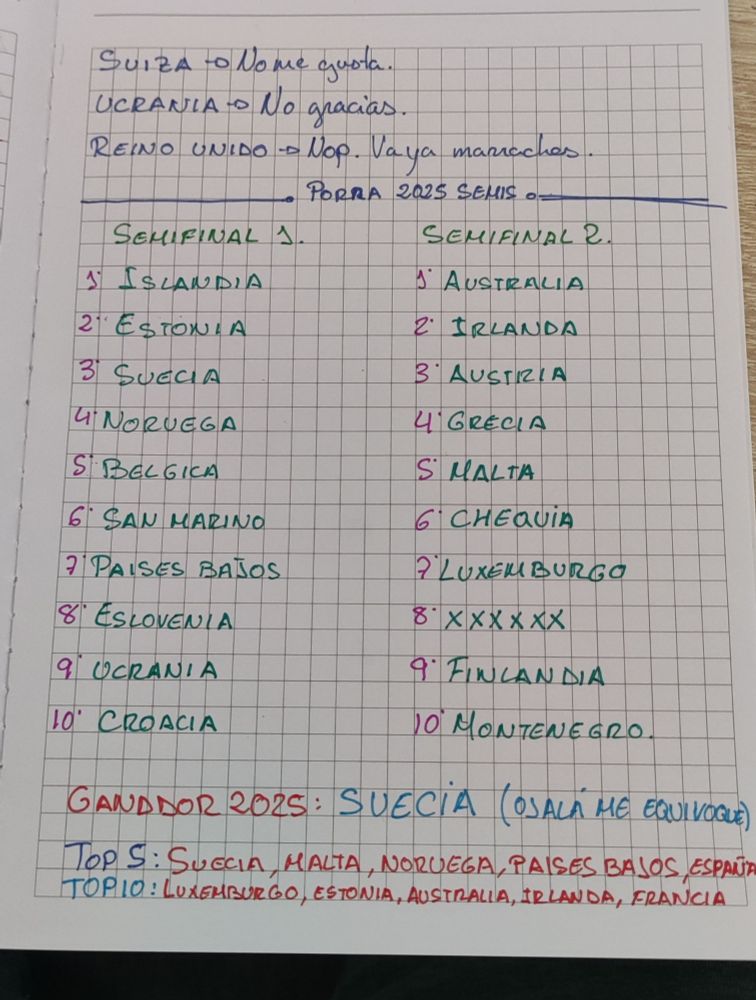 SUIZA → No me gusta.
UCRANIA → No gracias.
REINO UNIDO → Nop. Vaya marrachos.
PORRA 2025 SEMIS
SEMIFINAL 1.
1º ISLANDIA
2º ESTONIA
3º SUECIA
4º NORUEGA
5º BELGICA
6º SAN MARINO
7º PAISES BAJOS
8º ESLOVENIA
9º UCRANIA
10º CROACIA
SEMIFINAL 2.
1º AUSTRALIA
2º IRLANDA
3º AUSTRIA
4º GRECIA
5º MALTA
6º CHEQUIA
7º LUXEMBURGO
8º XXXXXX
9º FINLANDIA
10º MONTENEGRO.
GANADOR 2025: SUECIA (OJALÁ ME EQUIVOQUE)
TOP 5: SUECIA, MALTA, NORUEGA, PAISES BAJOS, ESPAÑA
TOP 10: LUXEMBURGO, ESTONIA, AUSTRALIA, IRLANDA, FRANCIA